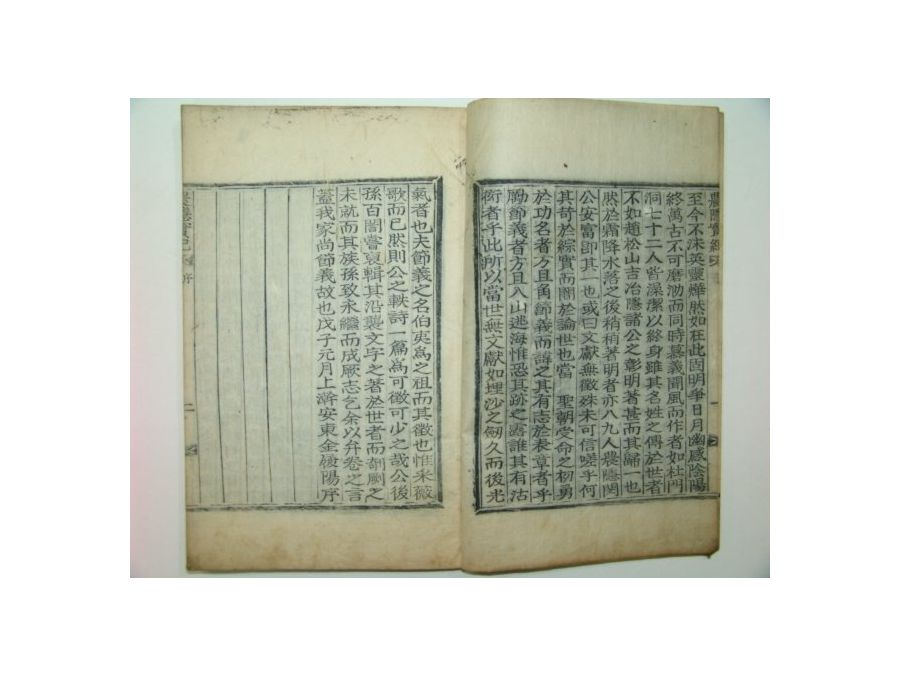 至今不沫英靈燁然如在此固明爭日月幽感陰陽
終萬古不可磨泐而同時慕義聞風而作者如杜門
洞七十二人皆藻潔以終身雖其名姓之傳於世者
不如趙松山吉冶隱諸公之彰明著甚而其歸一也
然於霜降水落之後稍稍著明者亦八九人農隱閔
公安富卽其一也或曰文獻無徵殊未可信嗟乎何
其苛於綜實而闇於論世也當 聖朝受命之初勇
於功名者方且角節義而諱之其有志於表章者乎
勵節義者方且入山逃海惟恐其跡之露誰其有沽
衒者乎此所以當世無文獻如埋沙之劒久而後光
農隱實紀 序
一
氣者也夫節義之名伯夷爲之祖而其徵也惟采薇
歌而已然則公之軼詩一篇爲可徵可少之哉公後
孫百誾嘗裒輯其沿襲文字之著於世者而剞劂之
未就而其族孫致永繼而成厥志乞余以弁卷之言
蓋我家尚節義故也戊子元月上澣安東金 陽序
農隱實紀 序
二